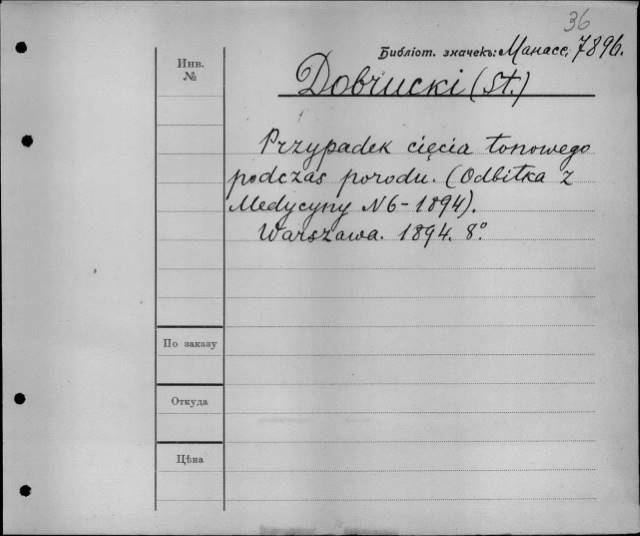 36
Библіот. значекъ: Манасс. 7896.
Инв.
№
Dobrucki (St.)
Przypadek cięcia łonowego
podczas porodu. (Odbitka z
Medycyny N 6 - 1894).
Warszawa. 1894. 8°.
По заказу
Откуда
Цѣна